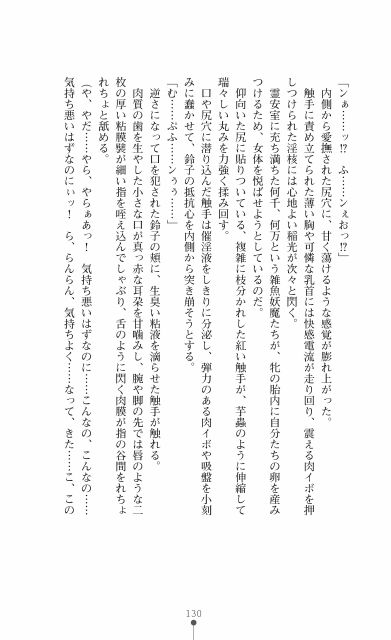 「ンぁ……ッ⁉ ふ……ンぇおっ⁉」
内側から愛撫された尻穴に、甘く蕩けるような感覚が膨れ上がった。
触手に責め立てられた薄い胸や可憐な乳首には快感電流が走り回り、震える肉イボを押
しつけられた淫核には心地よい稲光が次々と閃く。
霊安室に充ち満ちた何千、何万という雑魚妖魔たちが、牝の胎内に自分たちの卵を産み
つけるため、女体を悦ばせようとしているのだ。
仰向いた尻に貼りついている、複雑に枝分かれした紅い触手が、芋蟲のように伸縮して
瑞々しい丸みを力強く揉み回す。
口や尻穴に潜り込んだ触手は催淫液をしきりに分泌し、弾力のある肉イボや吸盤を小刻
みに蠢かせて、鈴子の抵抗心を内側から突き崩そうとする。
「む……ぷふ……ンぅぅ……」
逆さになって口を犯された鈴子の頬に、生臭い粘液を滴らせた触手が触れる。
肉質の歯を生やした小さな口が真っ赤な耳朶を甘噛みし、腕や脚の先では唇のような二
枚の厚い粘膜襞が細い指を咥え込んでしゃぶり、舌のように閃く肉膜が指の谷間をれちょ
れちょと舐める。
（や、やだ……やら、やらぁあっ！ 気持ち悪いはずなのに……こんなの、こんなの……
気持ち悪いはずなのにぃッ！ ら、らんらん、気持ちよく……なって、きた……こ、この
130